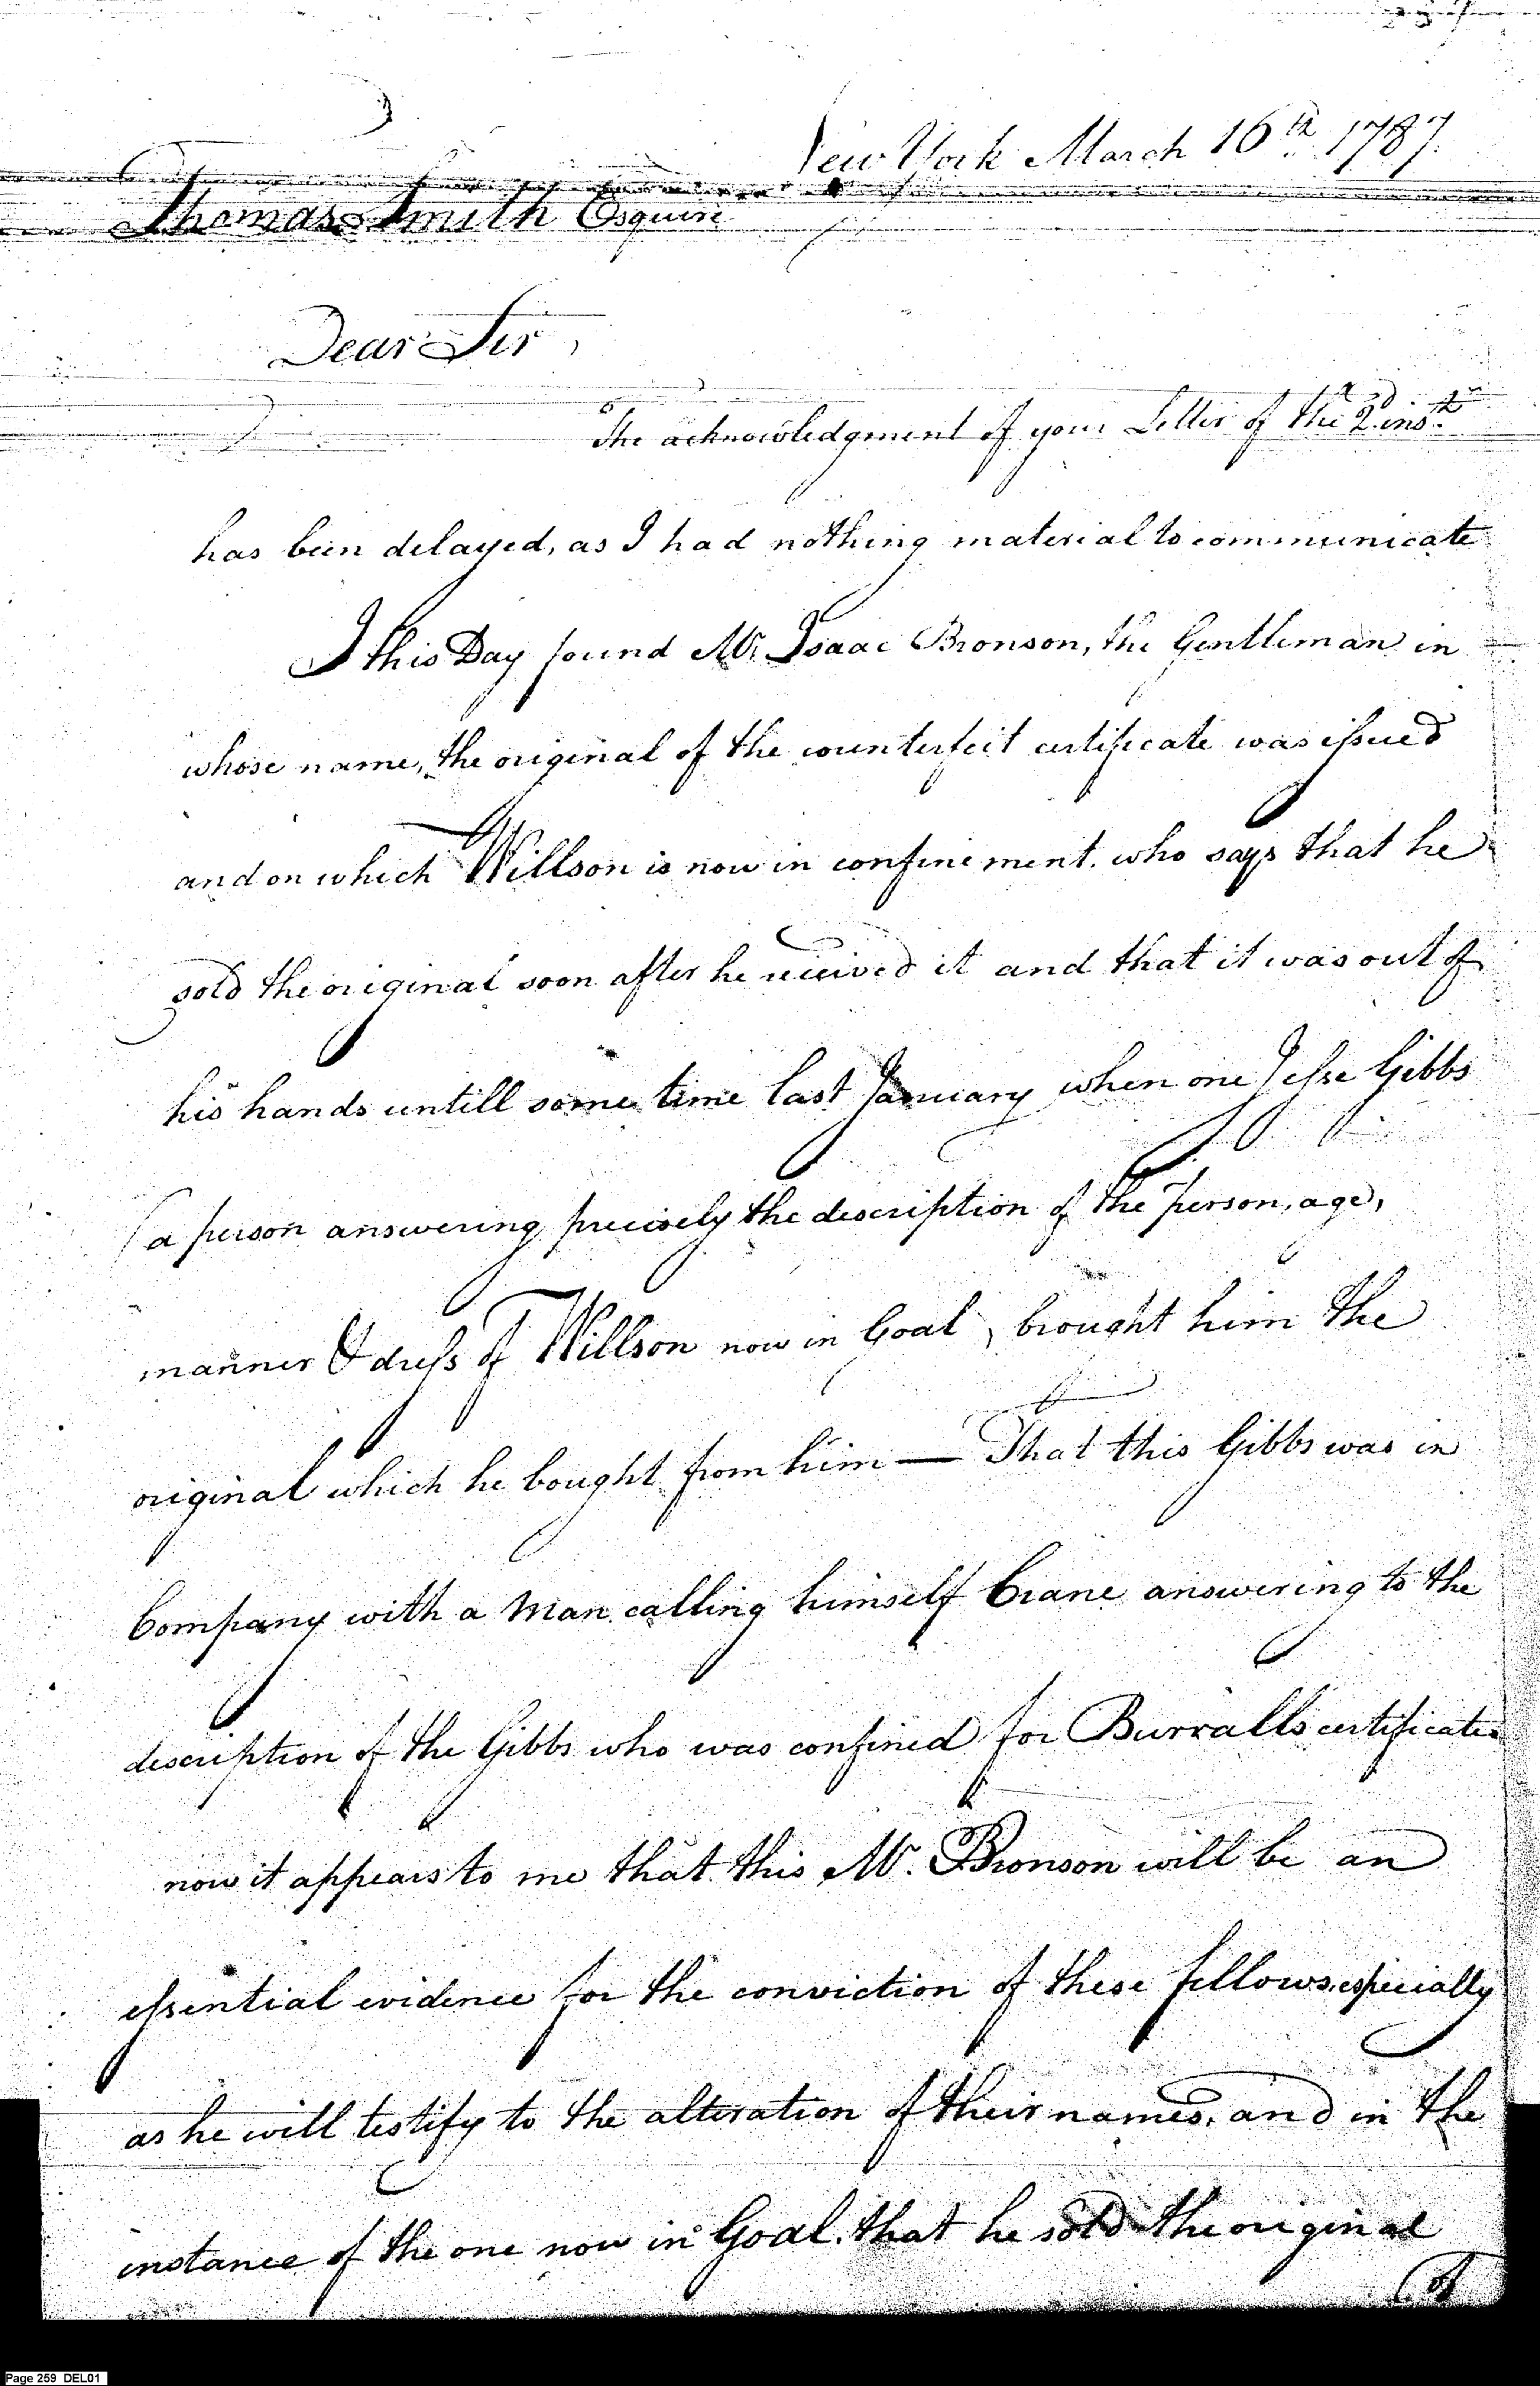 New York March 16th 1787.
Thomas Smith Esquire
Dear Sir,
The acknowledgment of your Letter of the 2d inst.
has been delayed, as I had nothing material to communicate
I this Day found Mr Isaac Bronson, the Gentleman in
whose name, the original of the counterfeit certificate was issued
and on which Willson is now in confinement. who says that he
sold the original soon after he received it and that it was out of
his hands untill some time last January when one Jesse Gibbs
(a person answering precisely the description of the person, age,
manner & dress of Willson now in Goal, brought him the
original which he bought from him — That this Gibbs was in
Company with a Man calling himself Crane answering to the
description of the Gibbs who was confined for Burralls certificates
now it appears to me that this Mr. Bronson will be an
essential evidence for the conviction of these fellows, especially
as he will testify to the alteration of their names, and in the
instance of the one now in Goal. that he sold the original
of
Page 259 DEL01